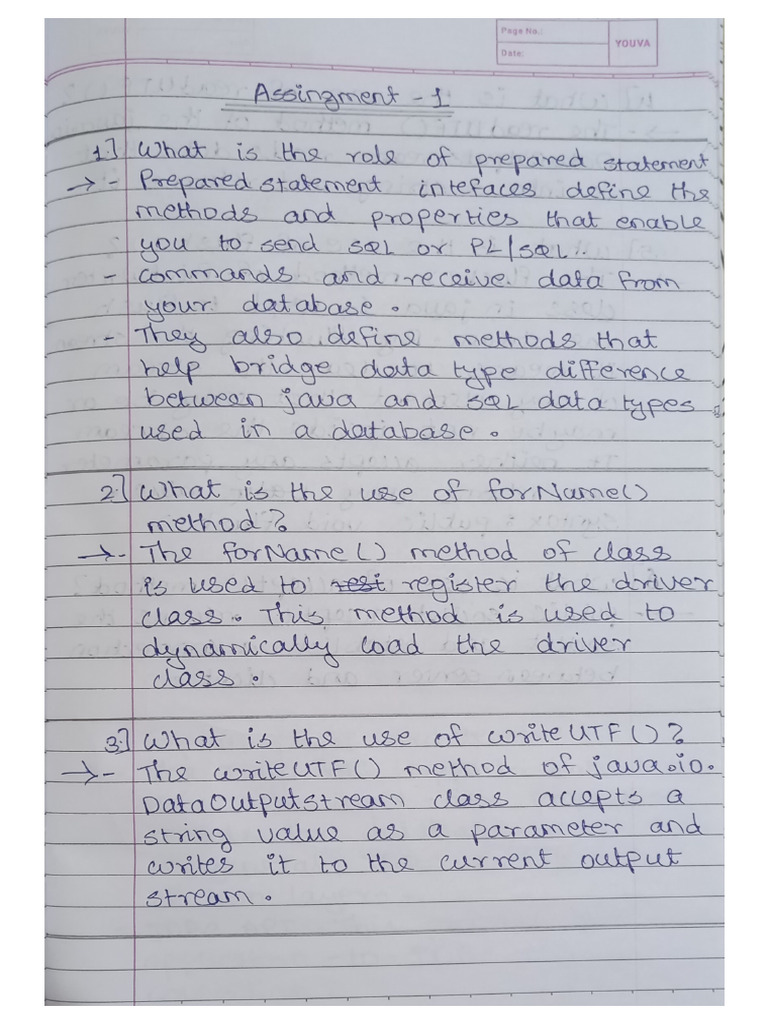 Page No.:
Date:
YOUVA
Assingment - 1
1.] What is the role of prepared statement
→ - Prepared statement intefaces define the
methods and properties that enable
you to send SQL or PL/SQL..
- commands and receive data from
your database.
- They also define methods that
help bridge data type difference
between java and SQL data types
used in a database.
2.] What is the use of forName()
method?
→ - The forName() method of class
is used to resi register the driver
class. This method is used to
dynamically load the driver
class.
3.] What is the use of writeUTF()?
→ - The writeUTF() method of java.io.
DataOutputstream class accepts a
string value as a parameter and
writes it to the current output
stream.